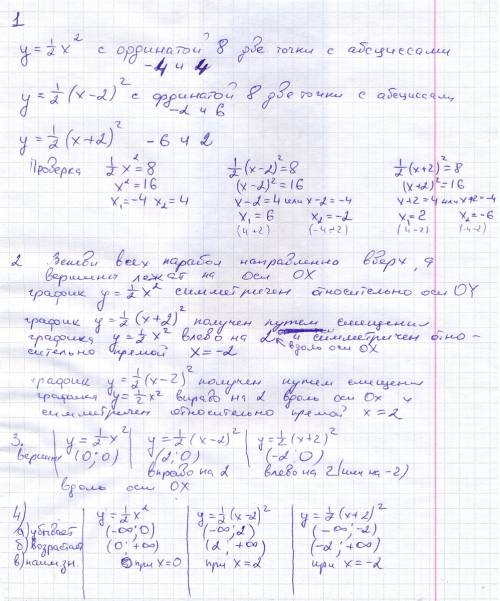 1
y = 1/2 x² с ординатой 8 две точки с абсциссами
-4 и 4
y = 1/2 (x-2)² с ординатой 8 две точки с абсциссам,
-2 и 6
y = 1/2 (x+2)² -6 и 2
Проверка 1/2 x² = 8 1/2 (x-2)² = 8 1/2 (x+2)² = 8
x² = 16 (x-2)² = 16 (x+2)² = 16
x₁ = -4 x₂ = 4 x-2 = 4 или x-2 = -4 x+2 = 4 или x+2 = -4
x₁ = 6 x₂ = -2 x₁ = 2 x₂ = -6
(4+2) (-4+2) (4-2) (-4-2)
2 Ветви всех парабол направленно вверх, а
вершины лежат на оси OX
график y = 1/2 x² симметричен относительно оси OY
график y = 1/2 (x+2)² получен путем смещения
графика y = 1/2 x² влево на 2 и симметричен отно-
вдоль оси OX
сительно прямой x = -2
график y = 1/2 (x-2)² получен путем смещения
графика y = 1/2 x² вправо на 2 вдоль оси Ox и
симметричен относительно прямой x = 2
3. y = 1/2 x² y = 1/2 (x-2)² y = 1/2 (x+2)²
вершин (0; 0) (2; 0) (-2; 0)
вправо на 2 влево на 2 (или на -2)
вдоль оси OX
4) y = 1/2 x² y = 1/2 (x-2)² y = 1/2 (x+2)²
а) убывает (-∞; 0) (-∞; 2) (-∞; -2)
б) возрастает (0; +∞) (2; +∞) (-2; +∞)
в) наим. зн. при x = 0 при x = 2 при x = -2